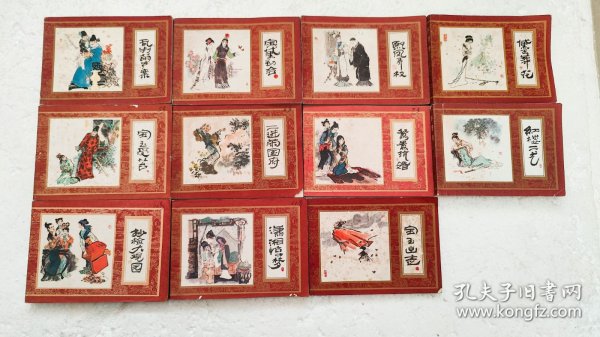 乱判葫芦案
宝黛初会
熙凤弄权
黛玉葬花
宝玉受笞
二进荣国府
鸳鸯抗婚
红楼二尤
抄检大观园
潇湘惊梦
宝玉出走
孔夫子旧书网
www.kongfz.com